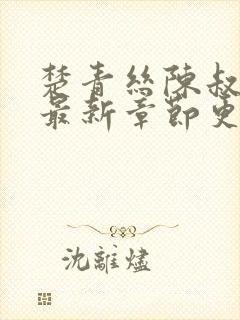 楚青絲陳叔
最新章節更
沈離燼